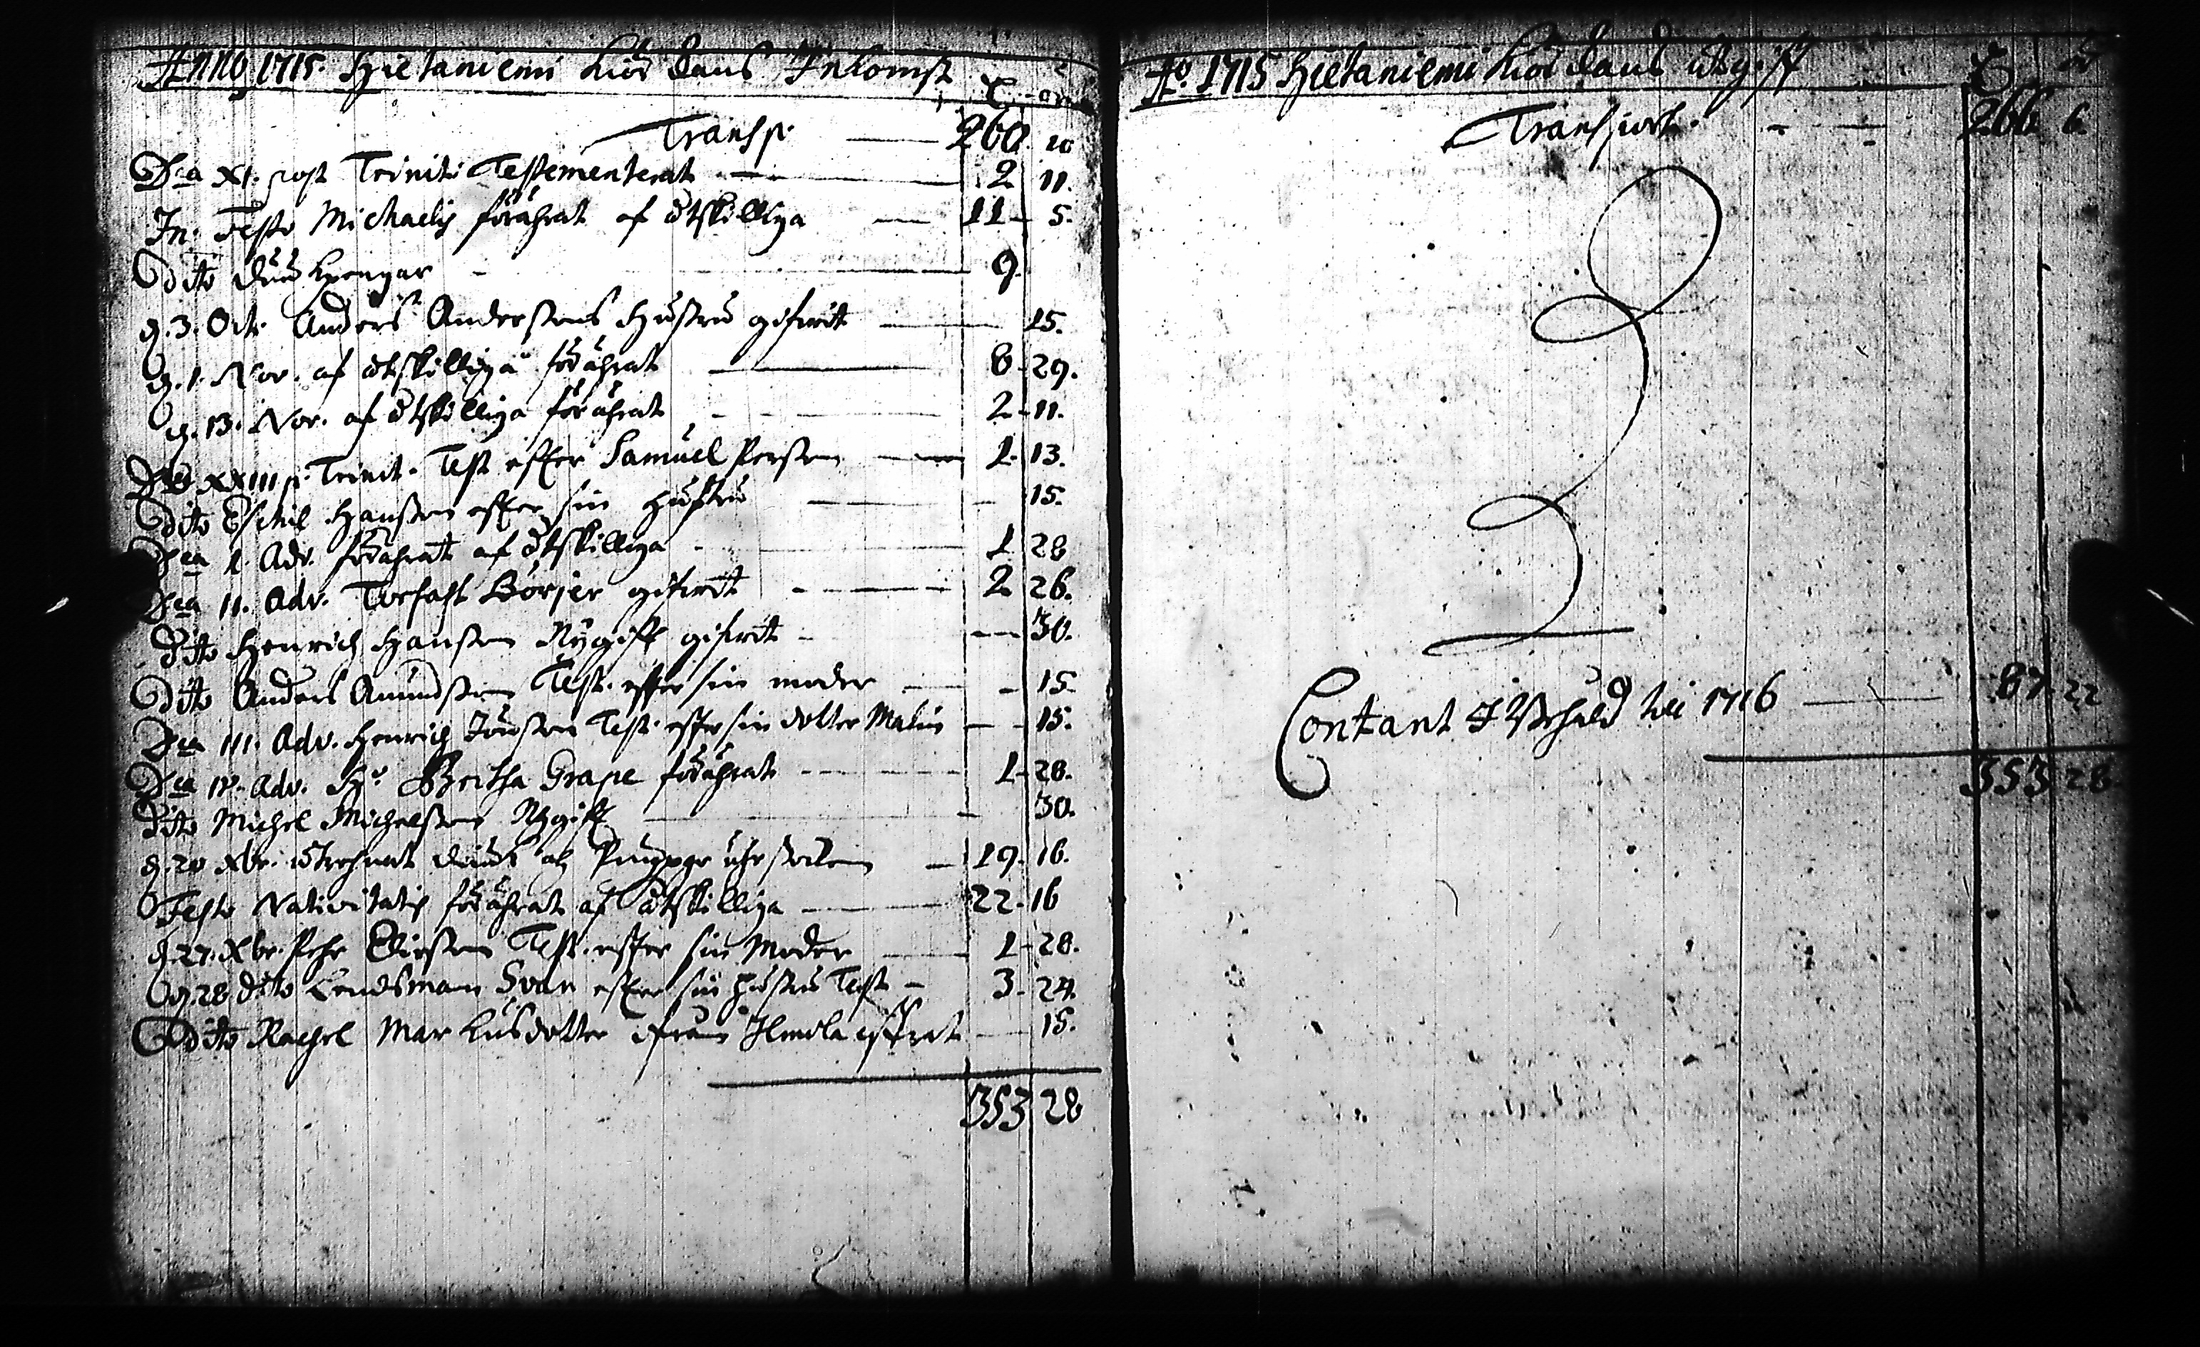 Anno 1715. Hietaniemi kiörckans Inkomst
Transp. — 260. 20
Dca XI. post Trinit: Testementerat — 2 11.
In. Festo Michaelis förährat af åtskillige — 11 — 5.
Dito penngar — 9.
d. 3. Oct. Anders Anderssons Hustru gifwit — 15.
d. 1. Nov. af åtskilliga förährat — 8 — 29.
d. 13. Nov. af åtskilliga förährat — 2 — 11.
XXIII p. Trinit. Test effter Samuel Persson — 1. 13.
Dito Eschil Hansson effter sin hustru — 15.
Dca 1. Adv. förährat af åtskilliga — 1 28
Dca II. Adv. Börjer gifwit — 2 26.
Dito Henrich Hansson Nÿgifft gifwit — 30.
Dito Anders Amundsson Test. effter sin moder — 15.
Dca III. Adv. Henrich Jönsson Test. effter sin dotter Malin — 15.
Dca IV. Adv. H. Britha Grape förährat — 1 — 28.
Dito Michel Michelsson Nÿgifft — 30.
d. 20 Xbr. — 19. 16.
Festo Nativitatis förährat af åtskilliga — 22. 16
d. 27. Xbr. Pehr Test. effter sin Moder — 1 — 28.
d. 28 dito Lendsman Svan effter sin hustru Test — 3. 24.
Dito Rachel Markusdotter ifrån offrat — 15.
353 28
Ao. 1715 Hietaniemi kiörckans utgifft
Transport. — 266 6.
Contant I Behåld till 1716 — 87. 22
353 28